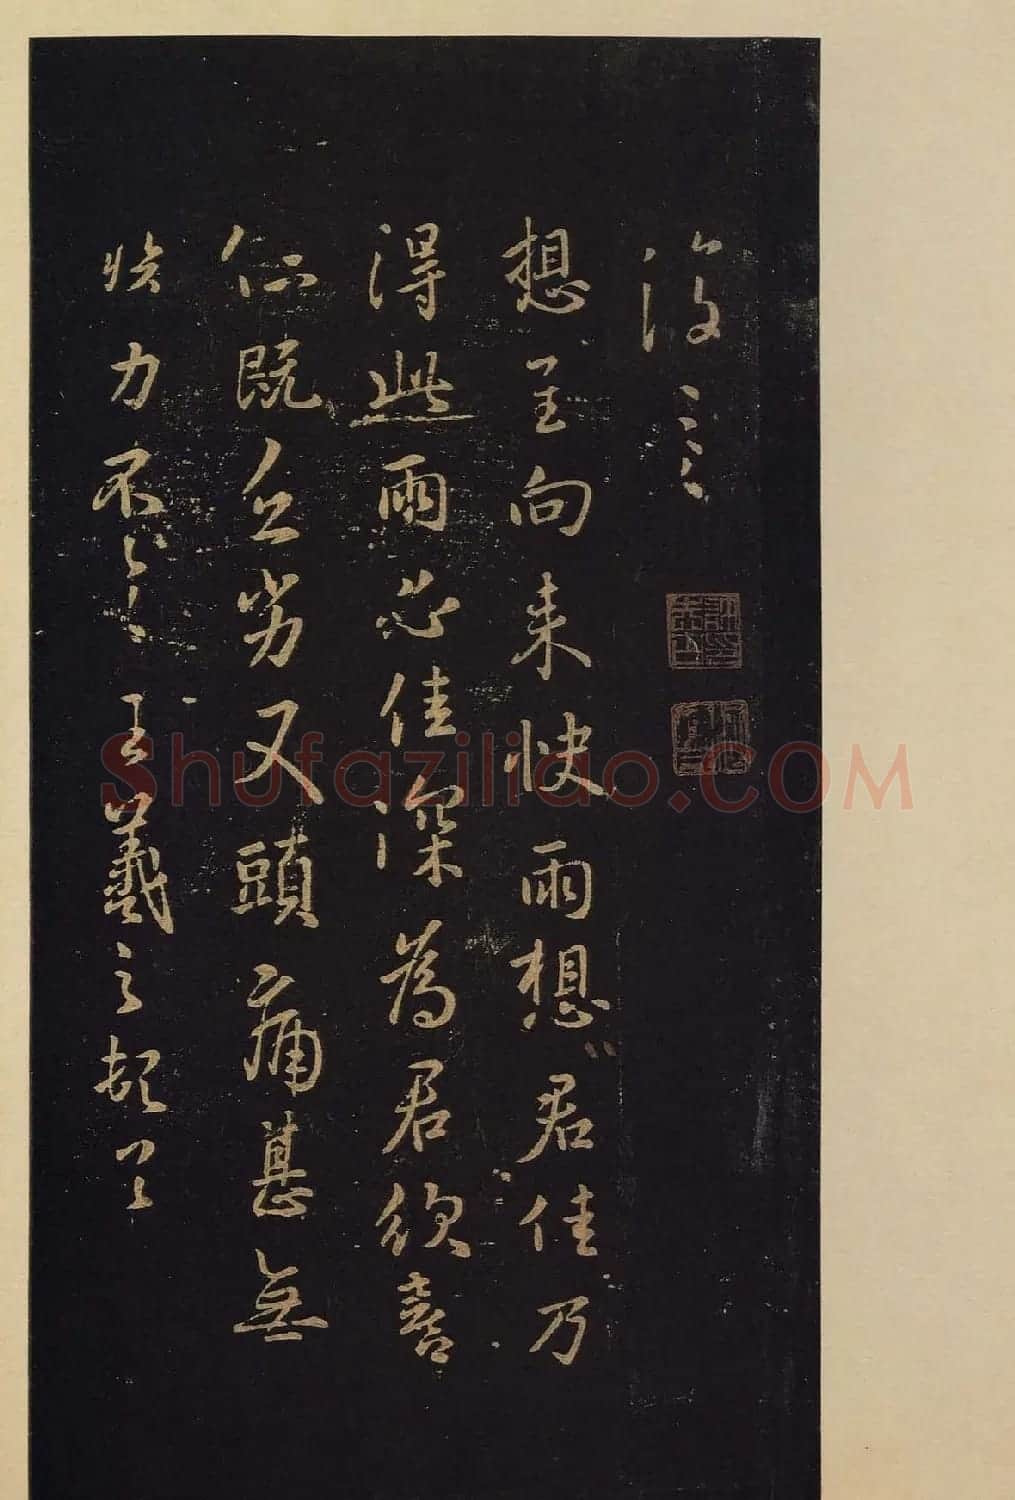 想至向来快雨想君佳乃
得此雨佳深為君欣喜
既乏劣又頭痛甚無
力不一一王羲之頓首
Shufazilidao.COM